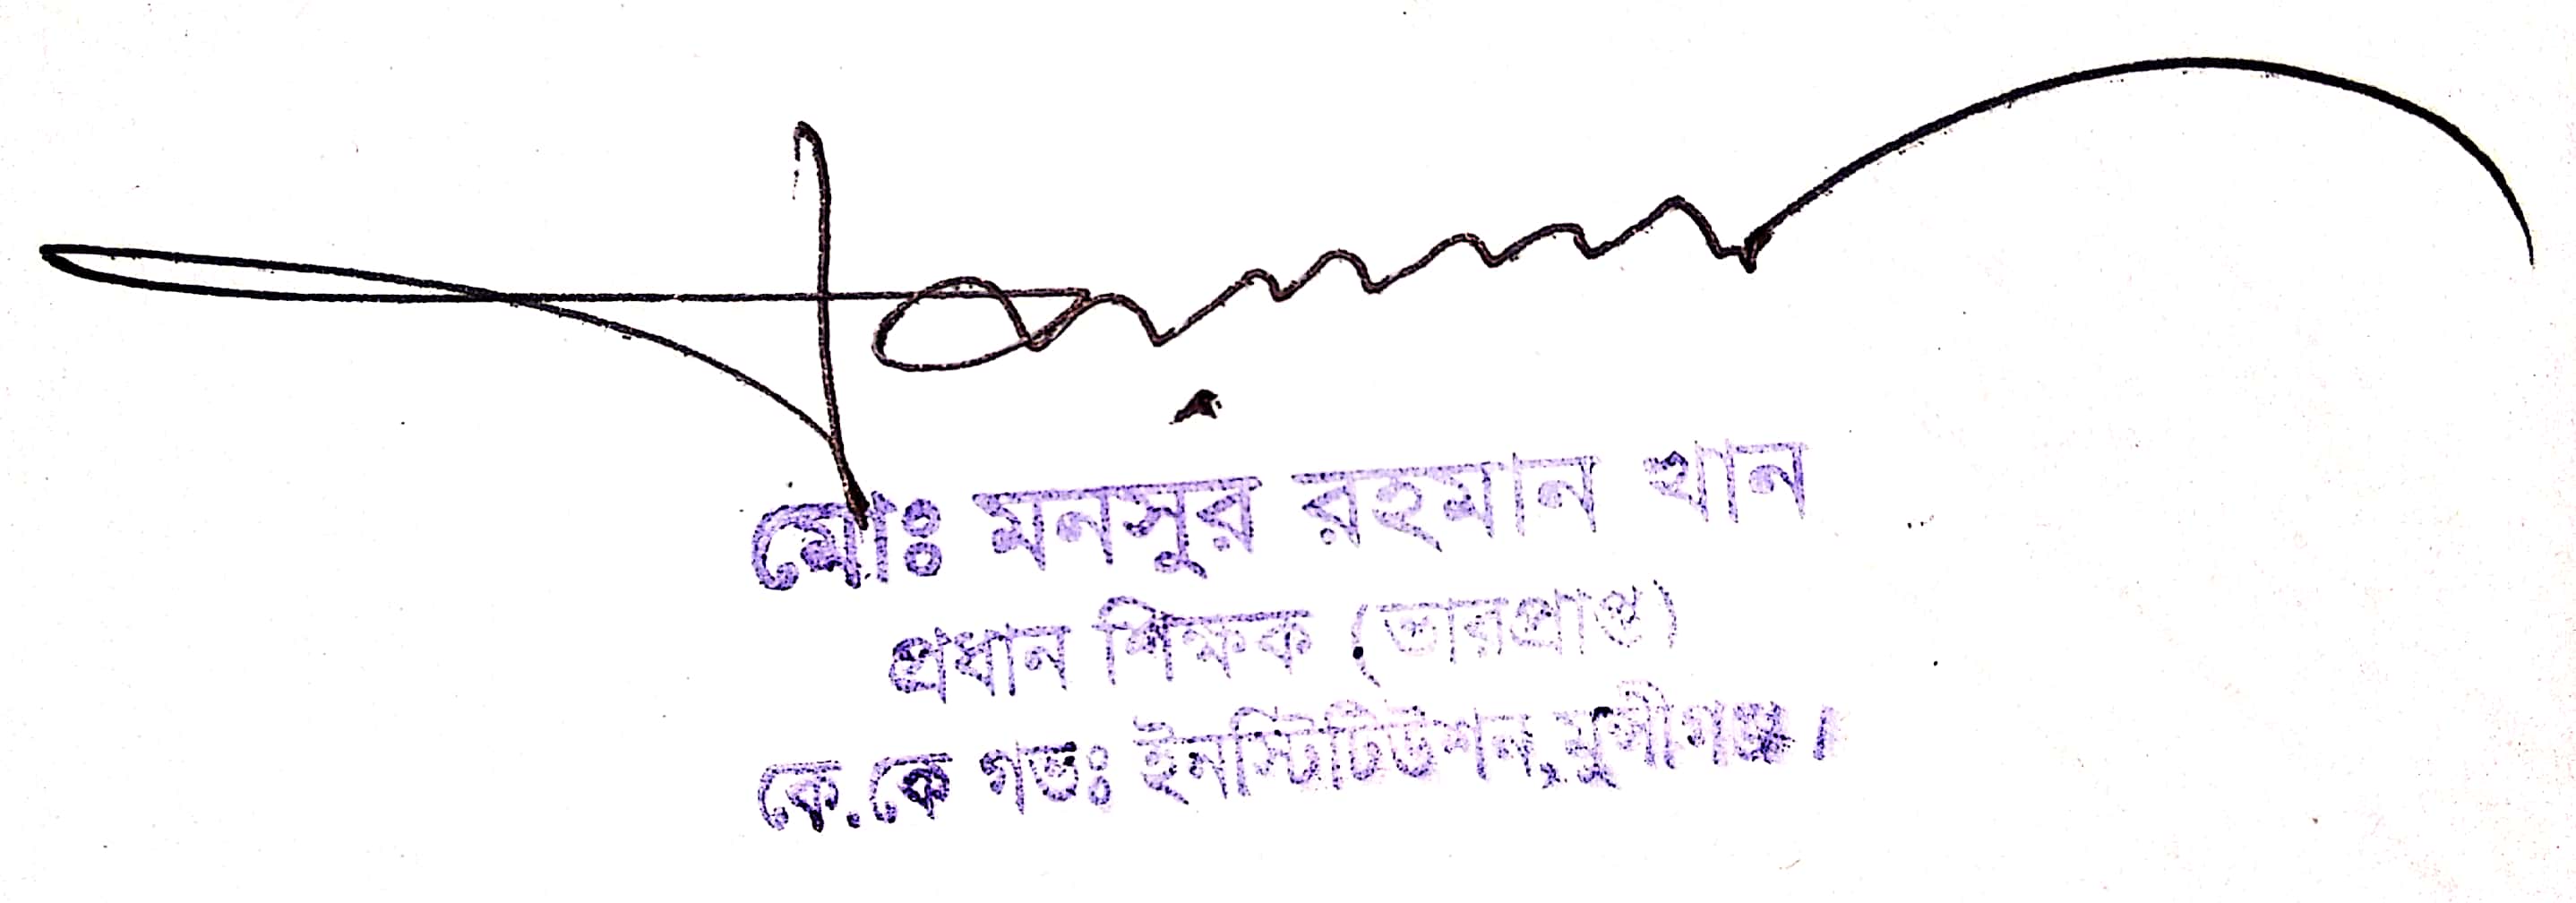 মোঃ মনসুর রহমান খান
প্রধান শিক্ষক (ভারপ্রাপ্ত)
কে.কে গভঃ ইনস্টিটিউশন, মুন্সীগঞ্জ।